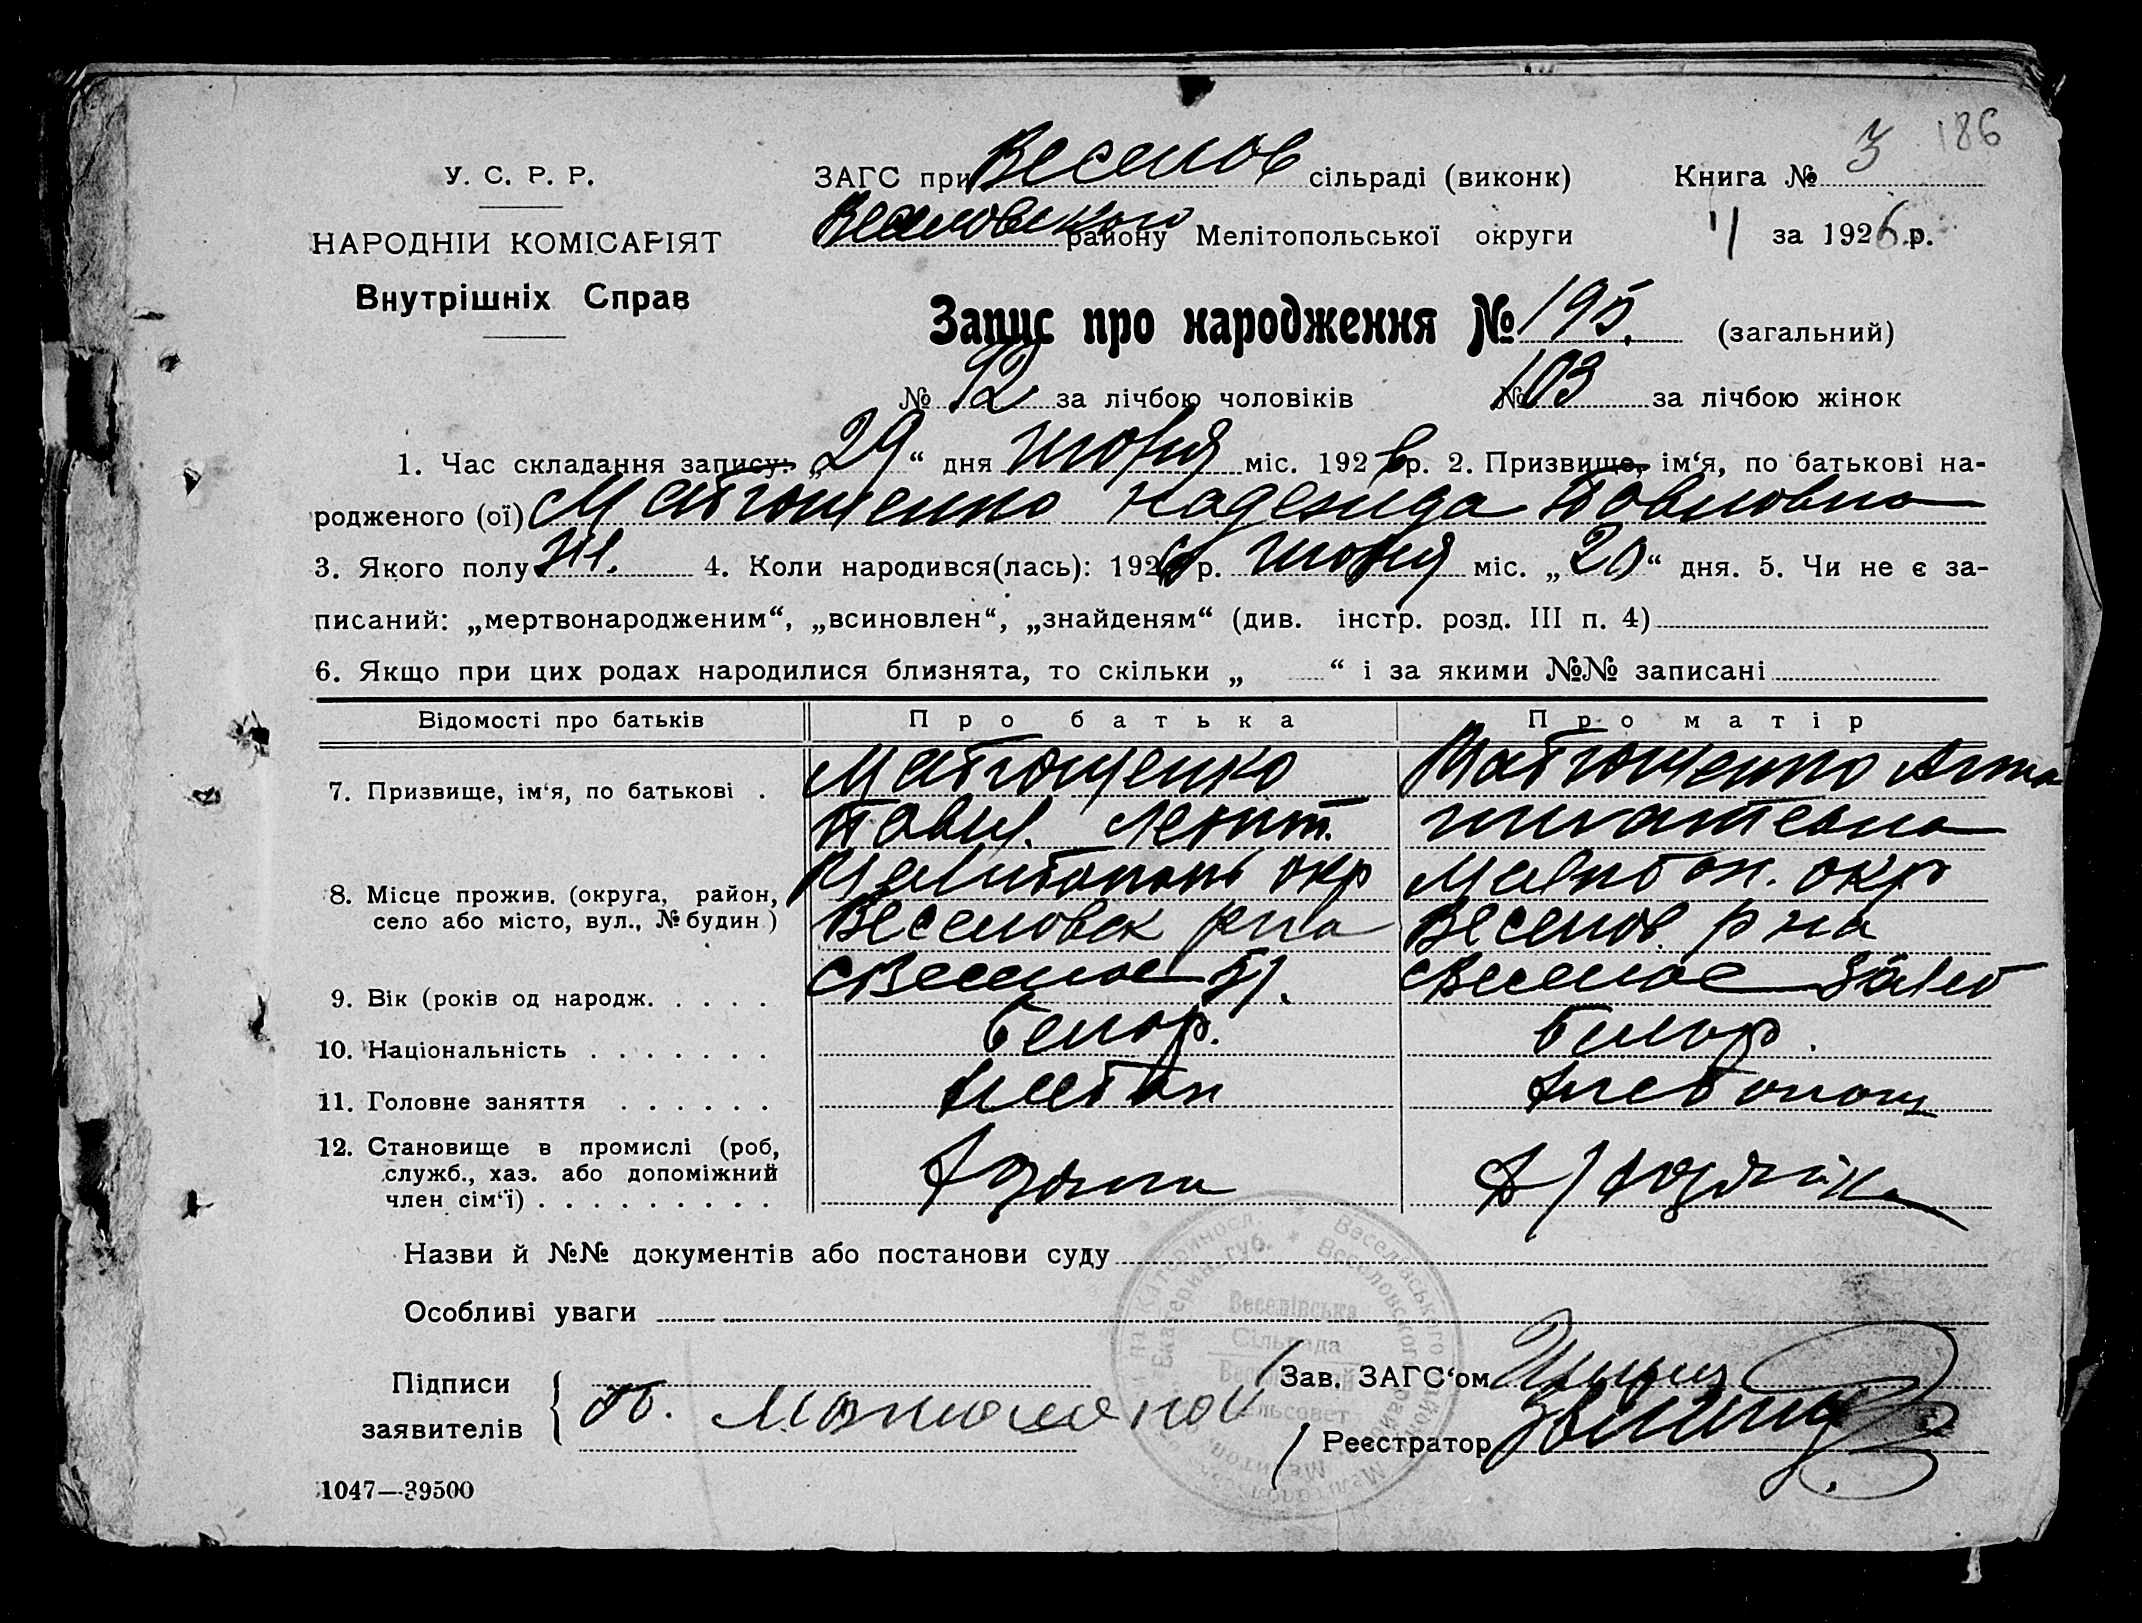 186
У. С. Р. Р.
НАРОДНІЙ КОМІСАРІЯТ
Внутрішніх Справ
ЗАГС при Веселов сільраді (виконк)
Веселовского району Мелітопольської округи
Книга № 3
за 1926 р.
Запис про народження № 195. (загальний)
№ 92 за лічбою чоловіків № 103 за лічбою жінок
1. Час складання запису: „29“ дня июня міс. 1926 р. 2. Призвище, ім‘я, по батькові на-
родженого (ої) Матющенко Надежда Павловна
3. Якого полу ж. 4. Коли народився(лась): 1926 р. июня міс. „20“ дня. 5. Чи не є за-
писаний: „мертвонародженим“, „всиновлен“, „знайденям“ (див. інстр. розд. III п. 4)
6. Якщо при цих родах народилися близнята, то скільки „ “ і за якими №№ записані
Відомості про батьків Про батька Про матір
7. Призвище, ім‘я, по батькові . Матющенко Матющенко Анна
Павел
8. Місце прожив. (округа, район, Мелитополь окр Мелитоп. окр
село або місто, вул., № будин) Веселовск рна Веселов рна
9. Вік (років од народж. . . . . с Веселое с Веселое
10. Національність . . . . . . .
11. Головне заняття . . . . . . Хлебоп Хлебопаш
12. Становище в промислі (роб,
служб., хаз. або допоміжний
член сім‘ї) . . . . . . . . .
Назви й №№ документів або постанови суду
Особливі уваги
Веселівська
Сільрада
Підписи
заявителів
Зав. ЗАГС‘ом
Реєстратор
1047—39500